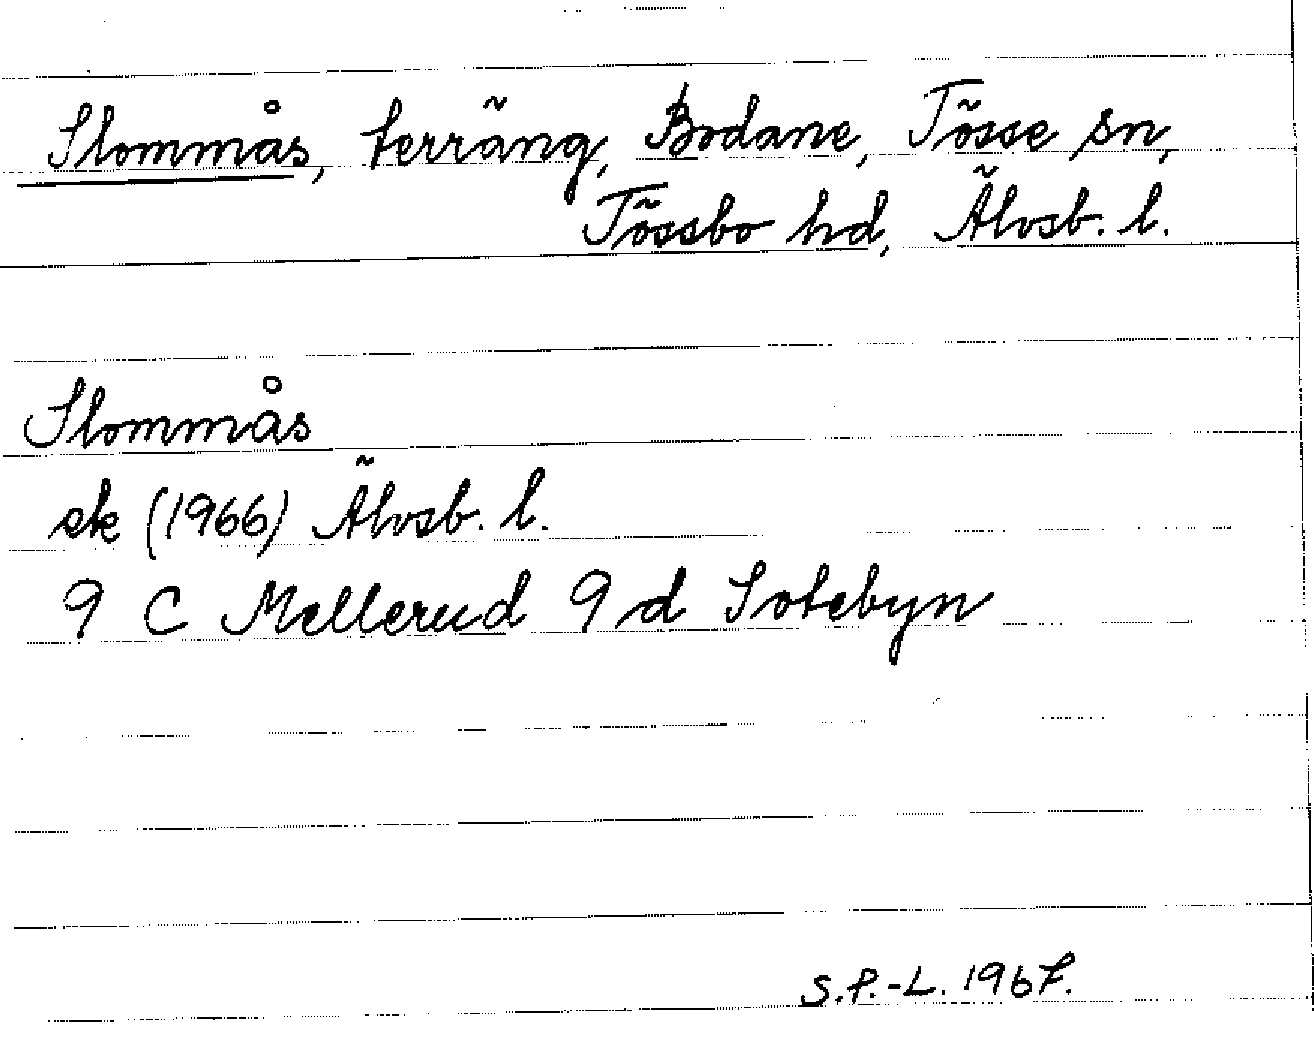 Slommås, terräng, Bodane, Tösse sn,
Tössbo hd, Älvsb. l.
Slommås
ek (1966) Älvsb. l.
9 C Mellerud 9 d Sotebyn
S.P.-L. 1967.